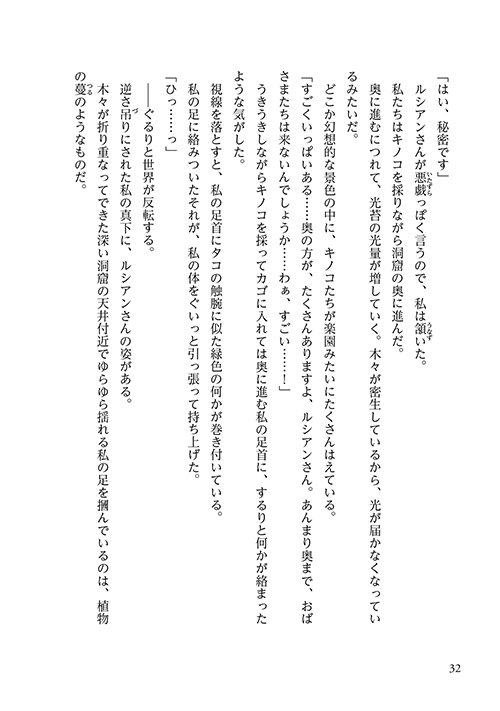 「はい、秘密です」
ルシアンさんが悪戯っぽく言うので、私は頷いた。
私たちはキノコを採りながら洞窟の奥に進んだ。
奥に進むにつれて、光苔の光量が増していく。木々が密生しているから、光が届かなくなってい
るみたいだ。
どこか幻想的な景色の中に、キノコたちが楽園みたいにたくさんはえている。
「すごくいっぱいある……奥の方が、たくさんありますよ、ルシアンさん。あんまり奥まで、おば
さまたちは来ないんでしょうか……わぁ、すごい……！」
うきうきしながらキノコを採ってカゴに入れては奥に進む私の足首に、するりと何かが絡まった
ような気がした。
視線を落とすと、私の足首にタコの触腕に似た緑色の何かが巻き付いている。
私の足に絡みついたそれが、私の体をぐいっと引っ張って持ち上げた。
「ひっ……っ」
――ぐるりと世界が反転する。
逆さ吊りにされた私の真下に、ルシアンさんの姿がある。
木々が折り重なってできた深い洞窟の天井付近でゆらゆら揺れる私の足を摑んでいるのは、植物
の蔓のようなものだ。
32